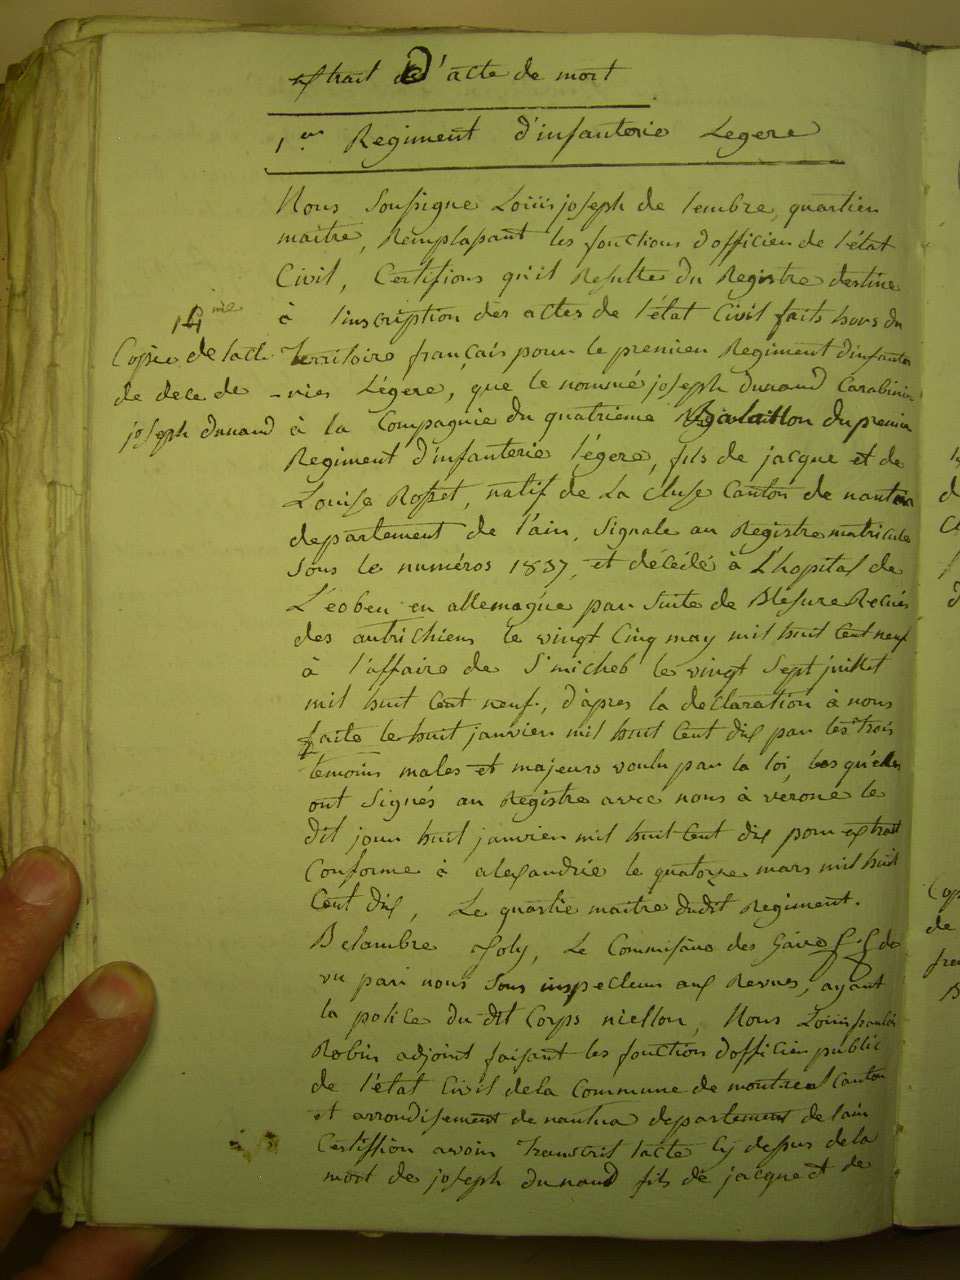 extrait D'acte de mort
1er Regiment d'infanterie Legere
Nous Soussigne Louis joseph de lembre, quartien
maitre, Remplasant les fonctions d'officien de l'état
Civil, Certifions qu'il Resulte du Registre destine
à l'inscription des actes de l'état Civil faits hors du
14me
Copie de lacte
de dece de
joseph dunand
Territoire français pour le premien Regiment d'infante
-ries Légere, que le nommé joseph dunand Carabinier
à la Compagnie du quatrieme Bataillon du premier
Regiment d'infanterie légere, fils de jacque et de
Louise Rosset, natif de La Cluse Canton de nantua
departement de l'ain, Signale au Registre matricule
Sous le numéros 1837, et décédé à L'hopital de
L'éoben en allemagne par Suite de Blesure Recues
des autrichiens le vingt Cinq may mil huit Cent neuf
à l'affaire de St micheb le vingt Sept juillet
mil huit Cent neuf, d'apres la declaration à nous
faite le huit janvien mil huit Cent dix par les trois
temoins males et majeurs voulu par la loi, lesqu'elles
ont Signés au Registre avec nous à verone le
dit jour huit janvien mil huit Cent dix pour extrait
Conforme à alexandrie le quatorze mars mil huit
Cent dix, Le quartie maitre dudit Regiment.
Belambre Joly, Le Commisaire des
vu pari nous Sous inspecteur aux Revues, ayant
la police du dit Corps niellon, Nous Louis
Robin adjoint faisant les fonction d'officien public
de l'état Civil de la Commune de montreal Canton
et arrondisement de nantua departement de l'ain
Certiffion avoir transcrit lacte Cy dessus de la
mort de joseph dunand fils de jacque et de